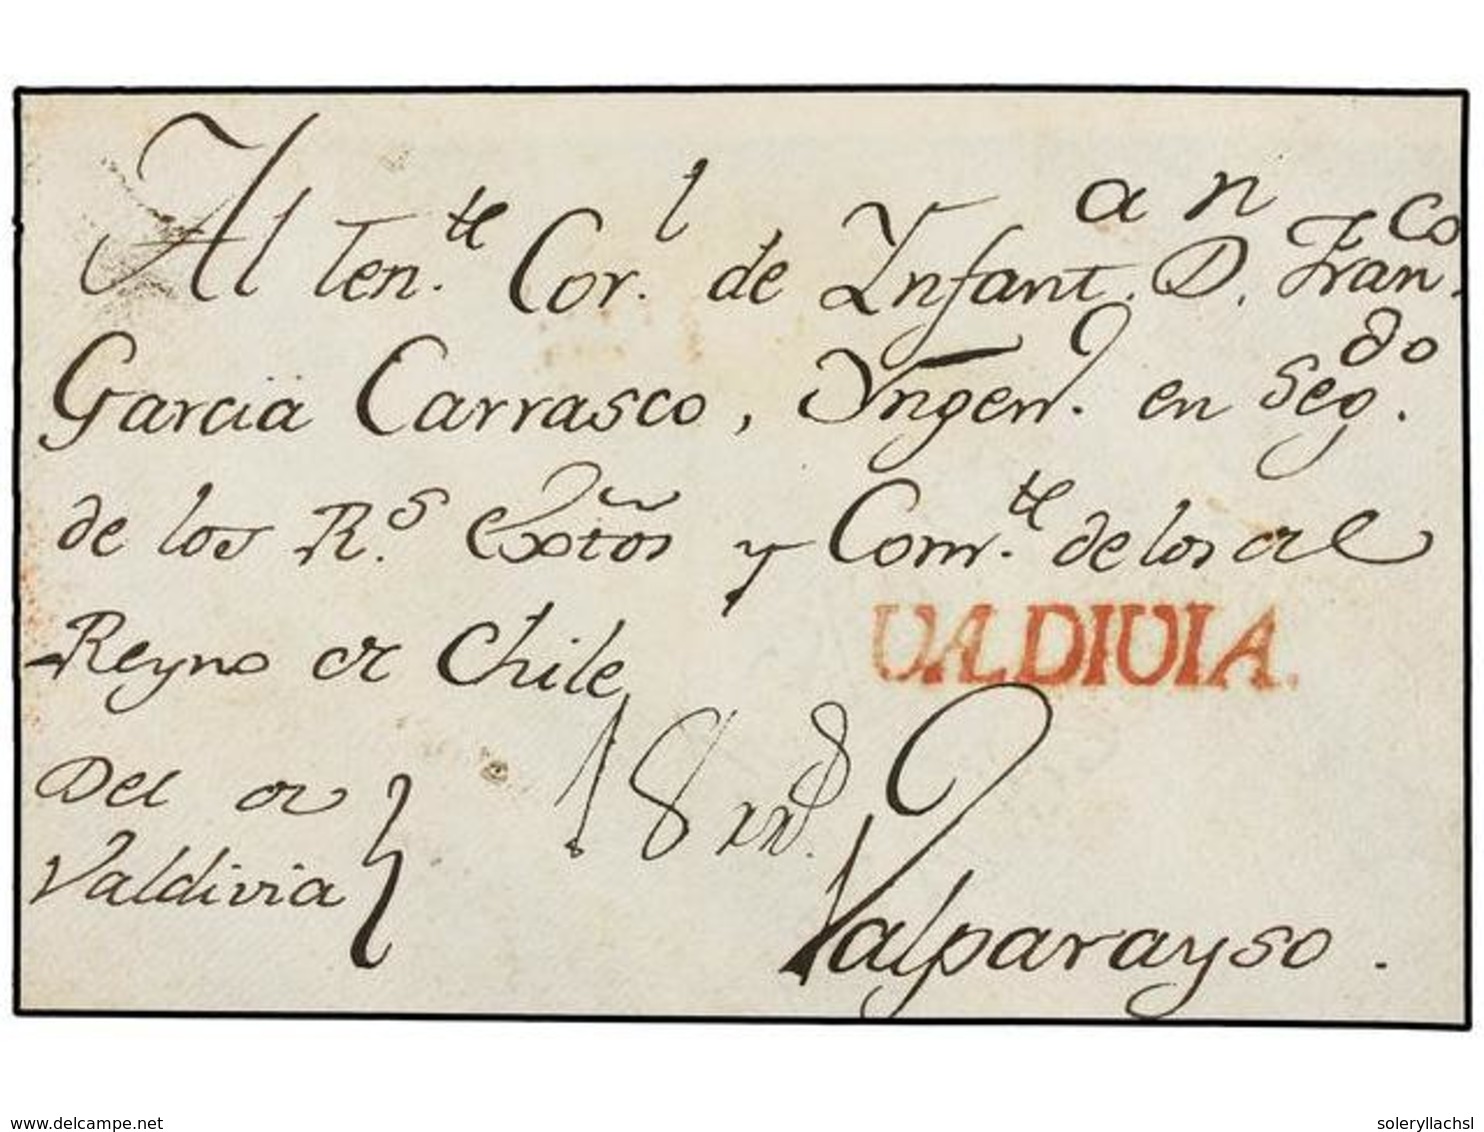 Al Ten.te Cor.l de Ynfant.a D.n Fran.co
Garcia Carrasco, Yngen.o en Seg.do
de los R.s Extõs y Com.te de los de
Reyno de Chile
VALDIVIA.
Del de
Valdivia
18
Valparayso.
www.delcampe.net
soleryllachsl